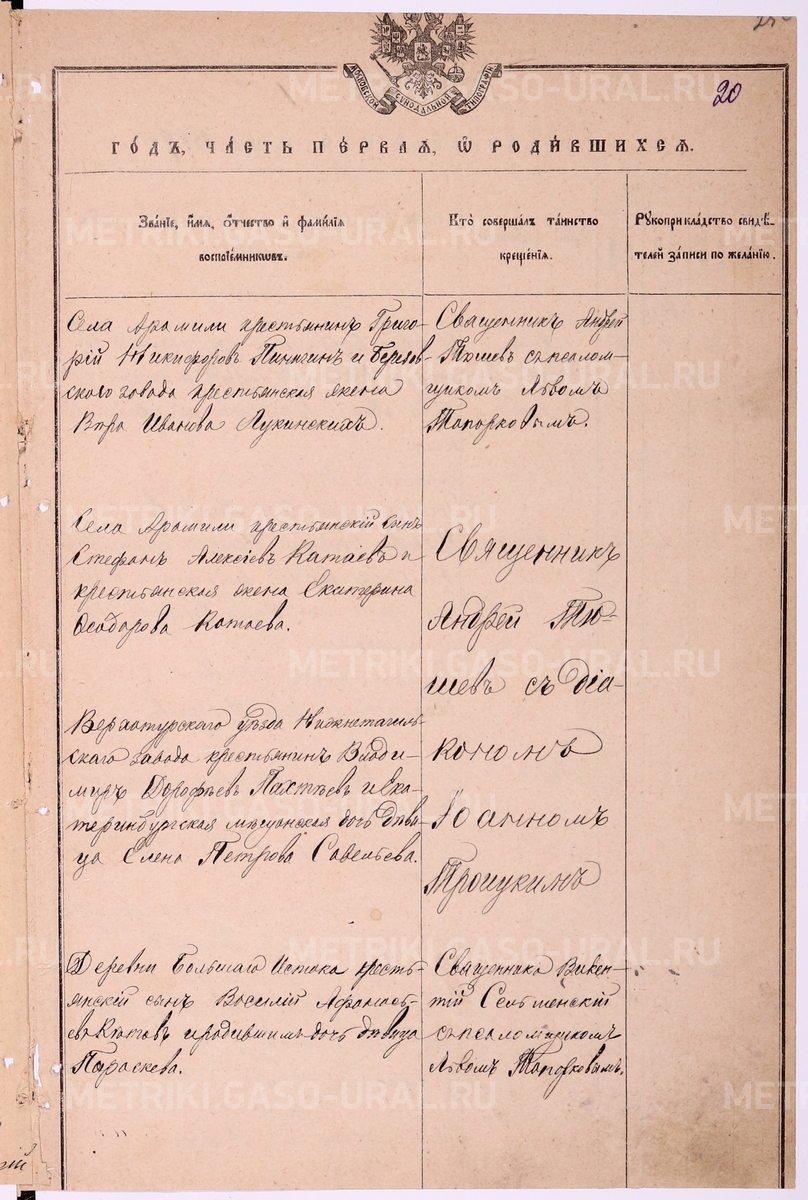 МОСКОВСКОЙ СѴНОДАЛЬНОЙ ТИПОГРАФІИ
20
ГО́ДЪ, ЧА́СТЬ ПЕ́РВАЯ, Ѡ҆ РОДИ́ВШИХСЯ.
Зва́ніе, и҆́мя, ѻ҆́тчество и҆ фами́лія
воспріе́мниковъ.
Кто̀ соверша́лъ та́инство
креще́нія.
Рꙋкоприкла́дство свидѣ́-
телей за́писи по жела́нію.
Села Арамили крестьянинъ Григо-
рій Никифоровъ Пинягин и Березов-
скаго завода крестьянская жена
Вѣра Иванова Лукинскихъ.
Священникъ Андрей
Тюшевъ съ псалом-
щикомъ Львомъ
Топорковымъ.
Села Арамили крестьянскій сынъ
Стефанъ Алексіевъ Катаевъ и
крестьянская жена Екатерина
Ѳеодорова Катаева.
Священникъ
Андрей Тю-
шевъ съ діа-
кономъ
Іоанномъ
Троицкимъ
Верхотурскаго уѣзда Нижнетагиль-
скаго завода крестьянинъ Влади-
миръ Дорофѣевъ Пахтѣевъ и Ека-
теринбургская мѣщанская дочь дѣви-
ца Елена Петрова Савельева.
Деревни Большаго Истока кресть-
янскій сынъ Василій Афанась-
евъ и родившимъ дочь дѣвица
Параскева.
Священника Викен-
тій Сельменскій
съ псаломщикомъ
Львомъ Топорковымъ.
METRIKI.GASO-URAL.RU